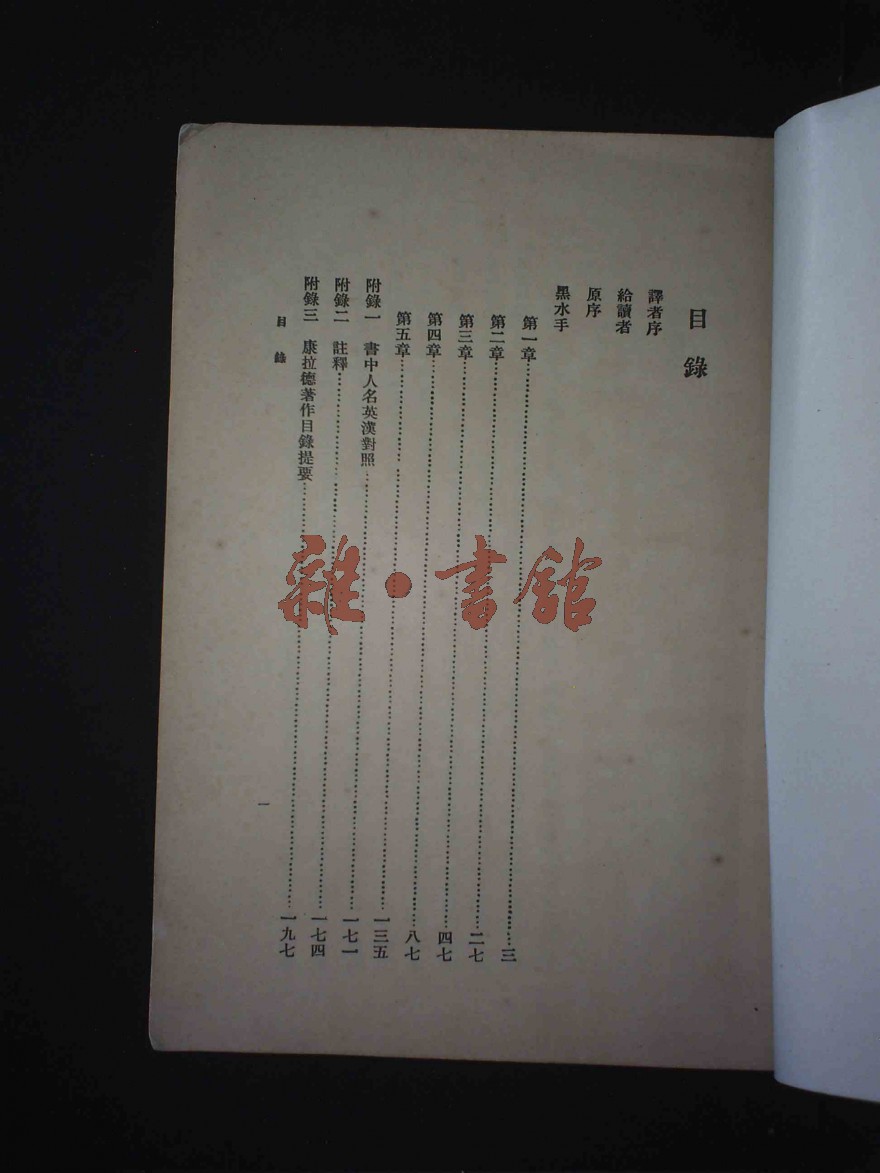 目錄
譯者序
給讀者
原序
黑水手
第一章………三
第二章………二七
第三章………四七
第四章………八七
第五章………一三五
附錄一 書中人名英漢對照………一七一
附錄二 註釋………一七四
附錄三 康拉德著作目錄提要………一九七
目錄
一
雜·書館